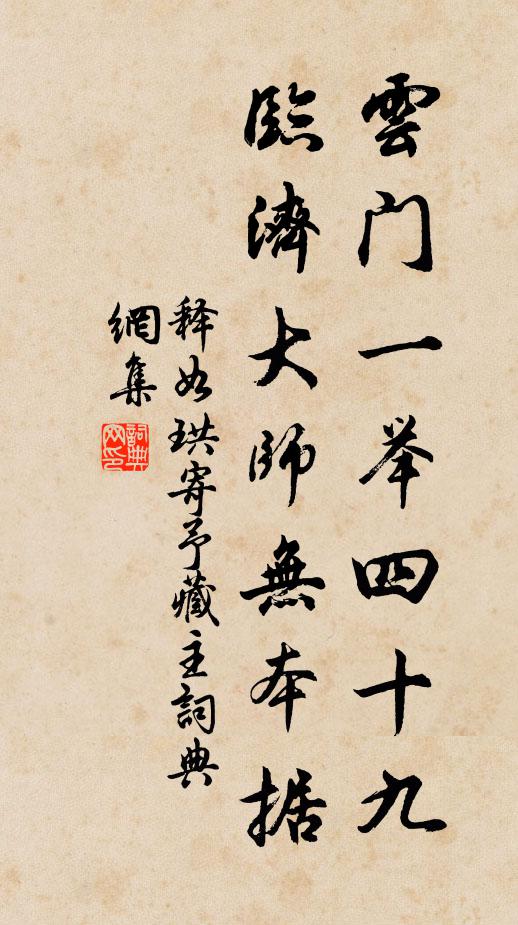 雲门一举四十九
臨濟大師無本据
释如珙寄予藏主詞典
網集
詞典
网印